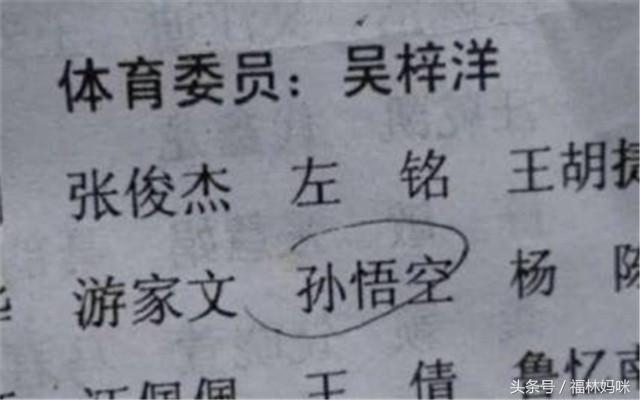 体育委员：吴梓洋
张俊杰 左 铭 王胡
游家文 孙悟空 杨
佩佩 王 倩 鲁忆
头条号／福林妈咪